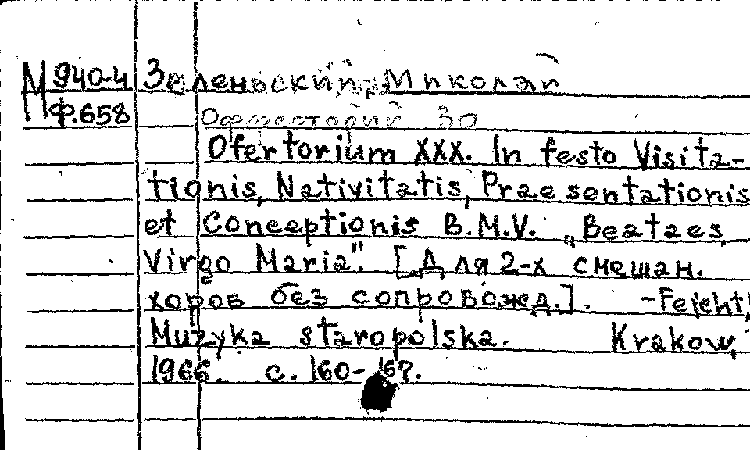 М 940-4 Зеленьский, Миколай
Ф.658 Оферторий 30
Ofertorium XXX. In festo Visita-
tionis, Nativitatis, Praesentationis
et Conceptionis B.M.V. „Beataes
Virgo Maria". [Для 2-х смешан.
хоров без сопровожд.]. -Fejcht,
Muzyka staropolska. Krakow,
1966. с. 160-167.